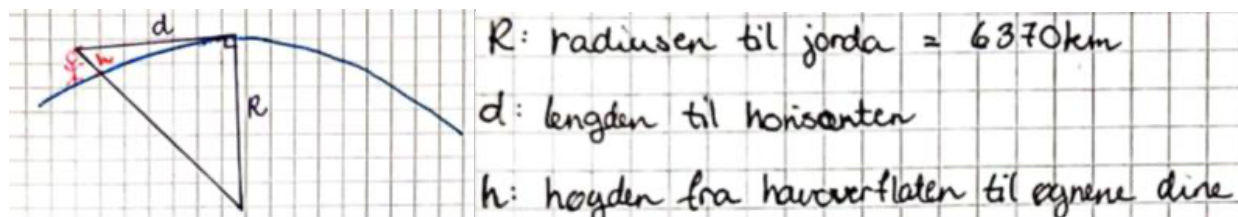 d
h
R
R: radiusen til jorda = 6370km
d: lengden til horisonten
h: høgden fra havoverflaten til øgnene dine